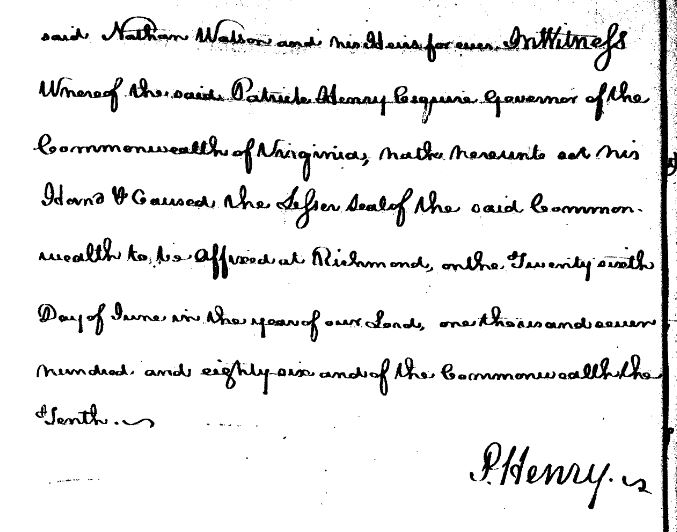 said Nathan Watson and his Heirs for ever. In Witness
Whereof the said Patrick Henry Esquire Governor of the
Commonwealth of Virginia, hath hereunto set his
Hand & Caused the Lesser Seal of the said Common-
wealth to be affixed at Richmond, on the Twenty sixth
Day of June in the year of our Lord, one thousand seven
hundred and eighty six and of the Commonwealth the
Tenth.
P. Henry.